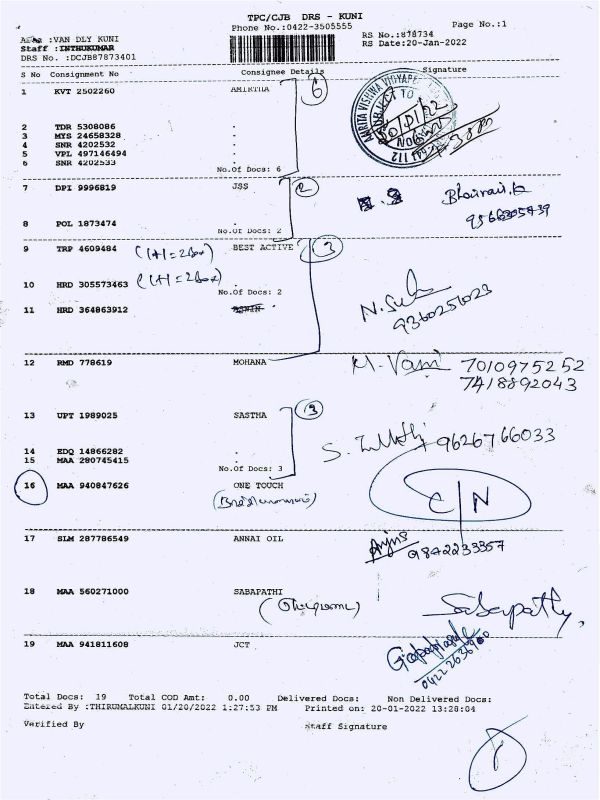 TPC/CJB DRS - KUNI
Phone No.:0422-3505555
Page No.:1
Area :VAN DLY KUNI
Staff :INTHUKUMAR
DRS No. :DCJB87873401
RS No.:878734
RS Date:20-Jan-2022
S No Consignment No Consignee Details Signature
1 KVT 2502260 AMIRTHA 6
2 TDR 5308086 .
3 MTS 24658328 .
4 SNR 4202532 .
5 VPL 497146494 .
6 SNR 4202533 .
No.Of Docs: 6
7 DPI 9996819 JSS 2
8 POL 1873474 .
No.Of Docs: 2
9566205439
9 TRP 4609484 (1+1=2Box) BEST ACTIVE 3
10 HRD 305573463 (1+1=2Box) .
No.Of Docs: 2
11 HRD 364863912
9360251023
12 RMD 778619 MOHANA M. Vani 7010975252
7418892043
13 UPT 1989025 SASTHA 3
14 EDQ 14866282 .
15 MAA 280745415 .
No.Of Docs: 3
9626766033
16 MAA 940847626 ONE TOUCH
C/N
17 SLM 287786549 ANNAI OIL
9842233357
18 MAA 560271000 SABAPATHI
Sabapathy
19 MAA 941811608 JCT
Total Docs: 19 Total COD Amt: 0.00 Delivered Docs: Non Delivered Docs:
Entered By :THIRUMALKUNI 01/20/2022 1:27:53 PM Printed on: 20-01-2022 13:28:04
Verified By Staff Signature